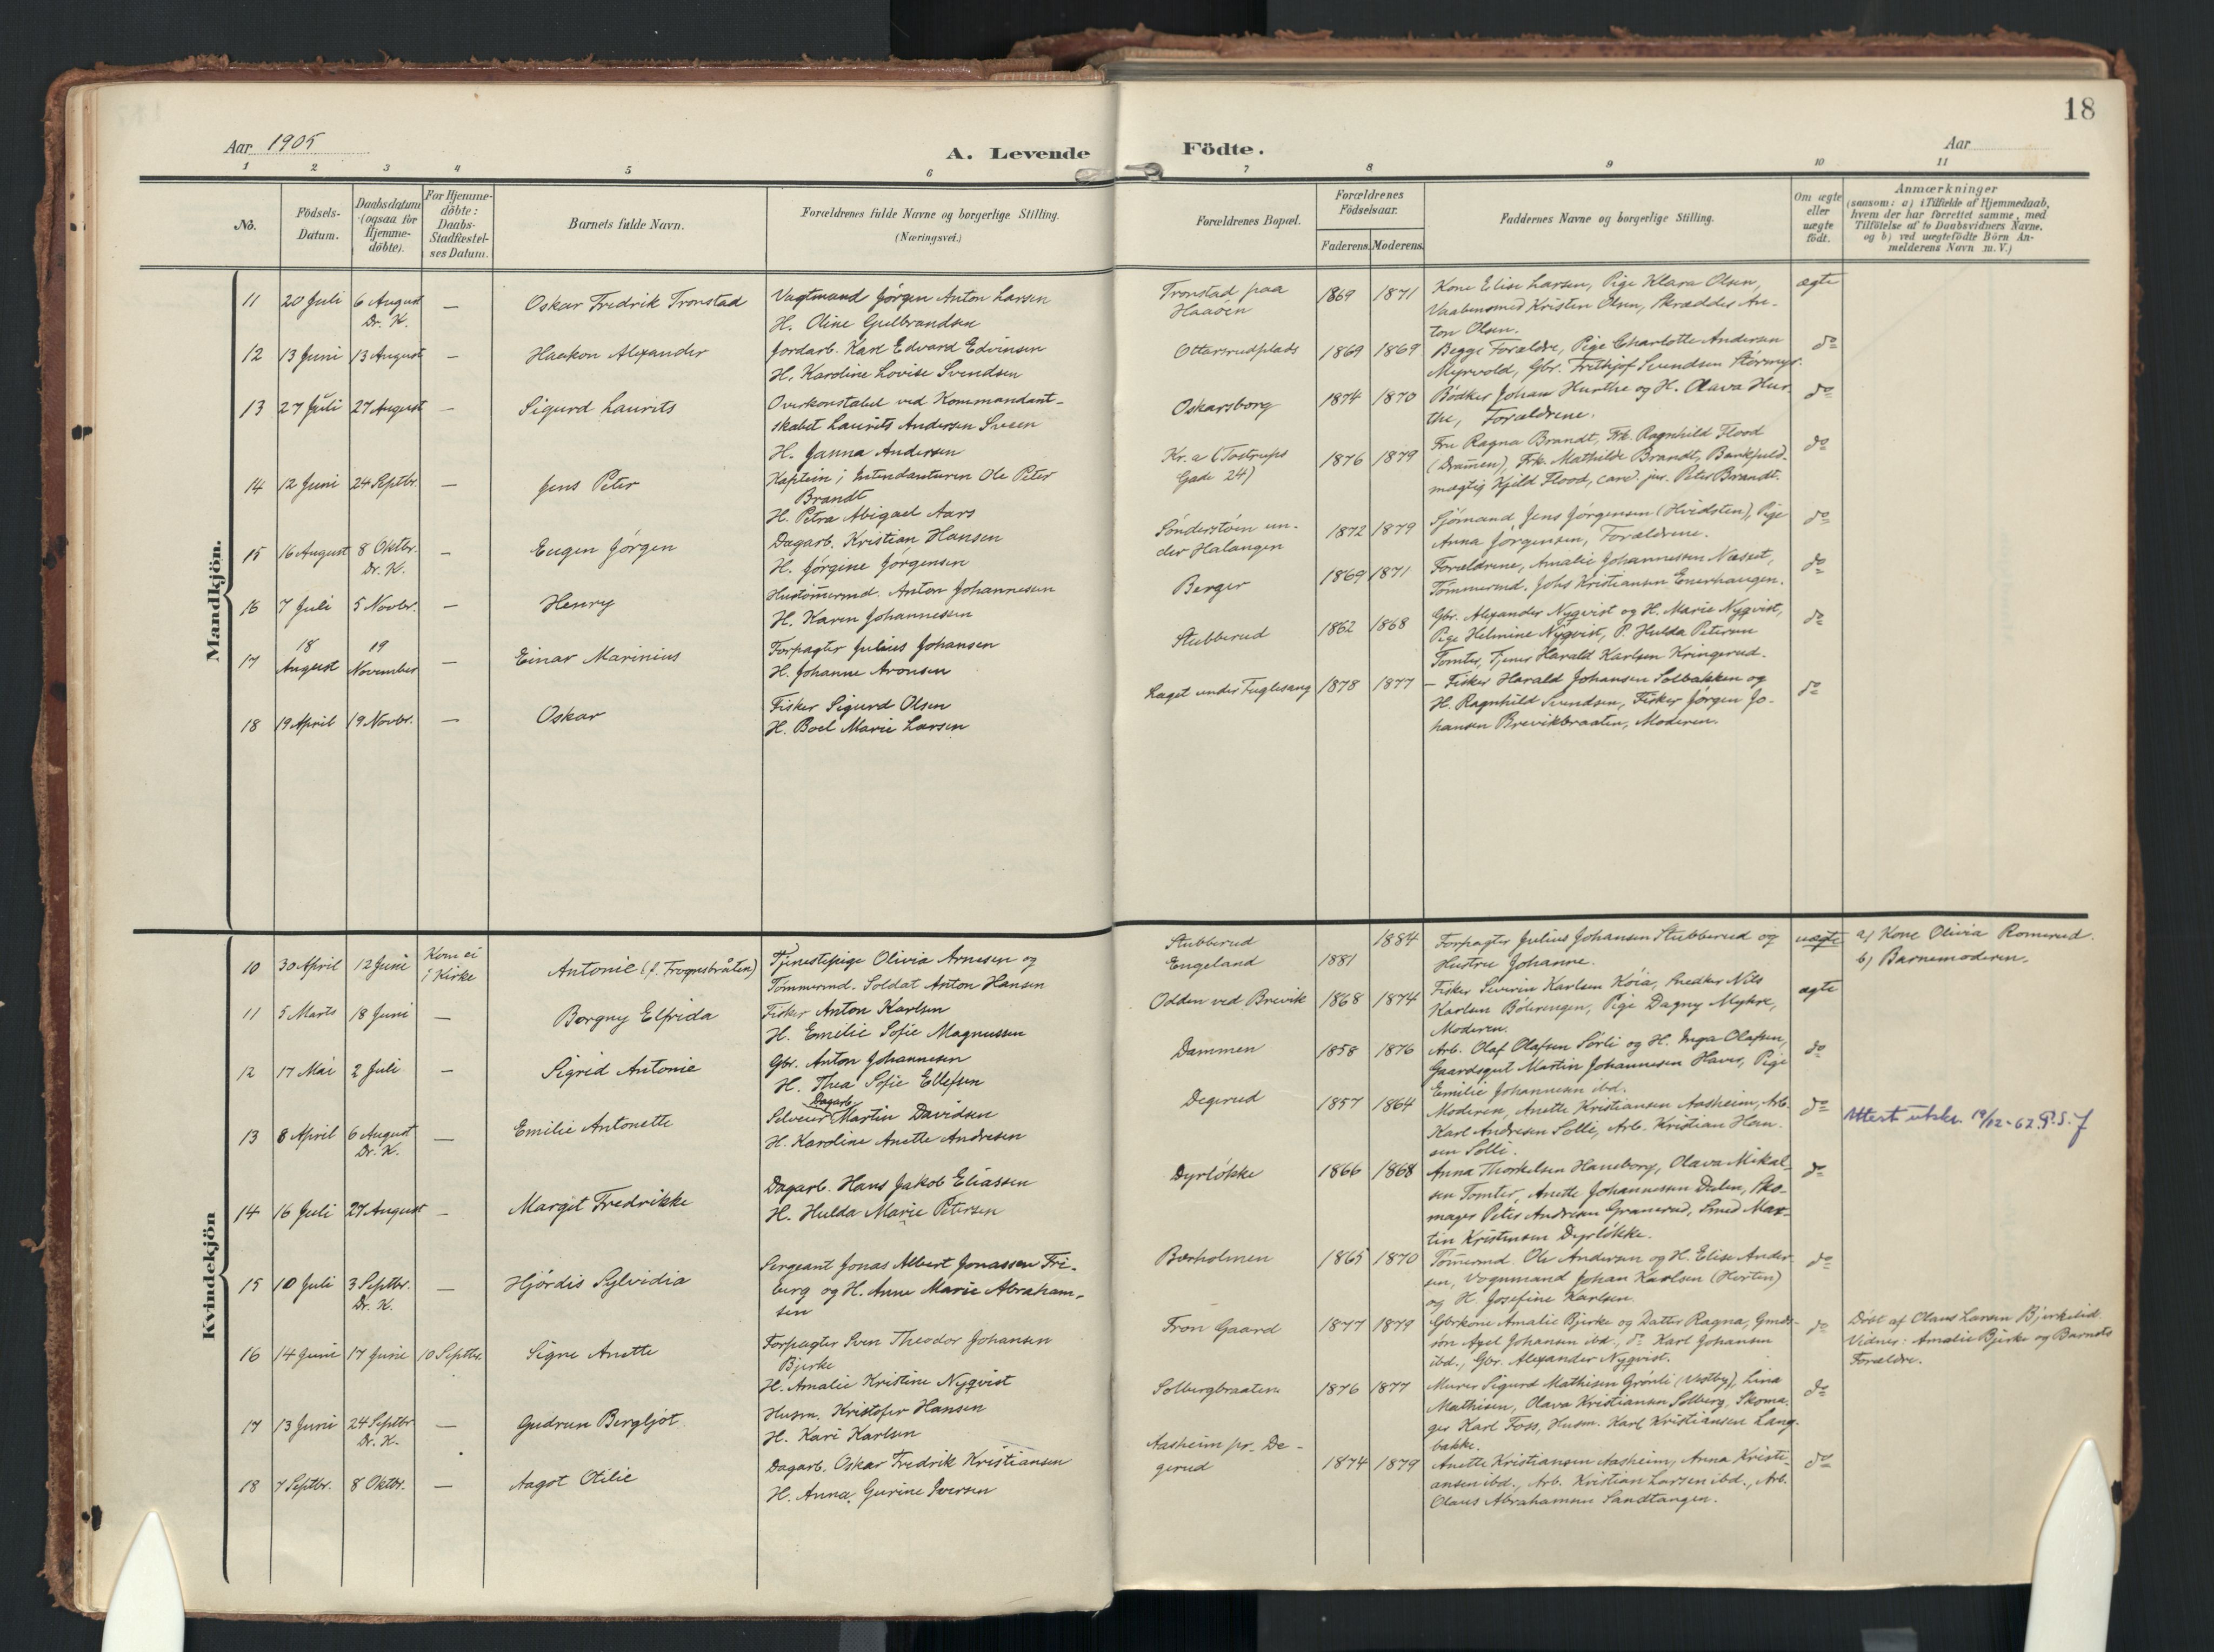 18
Aar 1905
A. Levende Födte.
Aar
1 2 3 4 5 6 7 8 9 10 11
No.
Födsels-Datum.
Daabsdatum (ogsaa for Hjemme-döbte).
For Hjemme-döbte: Daabs-Stadfæstel-ses Datum.
Barnets fulde Navn.
Forældrenes fulde Navne og borgerlige Stilling.
(Næringsvei.)
Forældrenes Bopæl.
Forældrenes Födselsaar.
Faderens. Moderens.
Faddernes Navne og borgerlige Stilling.
Om ægte eller uægte födt.
Anmærkninger
(saasom: a) i Tilfælde af Hjemmedaab,
hvem der har forrettet samme, med
Tilföielse af to Daabsvidners Navne,
og b) ved uægtefödte Börn An-
melderens Navn m. V.)
Mandkjön.
11 20 Juli 6 August Dr. K. — Oskar Fredrik Tronstad
Vagtmand Jørgen Anton Larsen
H. Oline Gulbrandsen
Tronstad paa
Haaöen
1869 1871
Kone Elise Larsen, Pige Klara Olsen,
Vaabensmed Kristen Olsen, Skrædder An-
ton Olsen.
ægte
12 13 Juni 13 August — Haakon Alexander
Jordarb. Karl Edvard Edvinsen
H. Karoline Lovise Svendsen
Ottarsrudplads
1869 1869
Begge Forældre, Pige Charlotte Andersen
Myrvold, Gbr. Frithjof Svendsen Störmyr.
do
13 27 Juli 27 August — Sigurd Laurits
Overkonstabel ved Kommandant-
skabet Laurits Andersen Sveen
H. Janna Andersen
Oskarsborg
1874 1870
Bødker Johan Hurthe og H. Olava Hur-
the, Forældrene.
do
14 12 Juni 24 Septbr. — Jens Peter
Kaptein i Intendanturen Ole Peter
Brandt
H. Petra Abigael Aars
Kr.a (Tostrups
Gade 24)
1876 1879
Fru Ragna Brandt, Frk. Ragnhild Flood
(Drammen), Frk. Mathilde Brandt, Bankfuld-
mægtig Kjeld Flood, cand. jur. Peter Brandt.
do
15 16 August 8 Oktbr. Dr. K. — Eugen Jørgen
Dagarb. Kristian Hansen
H. Jørgine Jørgensen
Sönderstöen un-
der Halangen
1872 1879
Sjömand Jens Jørgensen (Hvidsten), Pige
Anna Jørgensen, Forældrene.
do
16 7 Juli 5 Novbr. — Henry
Hustömermd. Anton Johannesen
H. Karen Johannessen
Berger
1869 1871
Forældrene, Amalie Johannessen Næsset,
Tömmermd. Johs Kristiansen Enerhaugen.
do
17 18 August 19 November — Einar Marinius
Forpagter Julius Johansen
H. Johanne Aronsen
Stubberud
1862 1868
Gbr. Alexander Nyqvist og H. Marie Nyqvist,
Pige Helmine Nyqvist, P. Hulda Petersen
Tomter, Tjener Harald Karlsen Kringerud.
do
18 19 April 19 Novbr. — Oskar
Fisker Sigurd Olsen
H. Boel Marie Larsen
Laget under Fuglesang
1878 1877
— Fisker Harald Johansen Solbakken og
H. Ragnhild Svendsen, Fisker Jørgen Jo-
hansen Brevikbraaten, Moderen.
do
Kvindekjön
10 30 April 12 Juni Kom ei i Kirke Antonie (f. Frognesbråten)
Tjenestepige Olivia Arnesen og
Tömmermd. Soldat Anton Hansen
Stubberud
Engeland
1881 1884
Forpagter Julius Johansen Stubberud og
Hustru Johanne.
uægte
a) Kone Olivia Romerud.
b) Barnemoderen.
11 5 Marts 18 Juni — Borgny Elfrida
Fisker Anton Karlsen
H. Emelie Sofie Magnussen
Odden ved Brevik
1868 1874
Fisker Severin Karlsen Köia, Snedker Nils
Karlsen Bölerengen, Pige Dagny Myhre,
Moderen.
ægte
12 17 Mai 2 Juli — Sigrid Antonie
Gbr. Anton Johannesen
H. Thea Sofie Ellefsen
Dammen
1858 1876
Arb. Olaf Olafsen Sørli og H. Inga Olafsen,
Gaardsgut Martin Johannesen Haver, Pige
Emilie Johannesen ibd.
do
13 8 April 6 August Dr. K. — Emilie Antonette
Dagarb.
Selveier Martin Davidsen
H. Karoline Anette Andresen
Degerud
1857 1864
Moderen, Anette Kristiansen Aasheim, Arb.
Karl Andresen Solli, Arb. Kristian Han-
sen Solli.
do
Attest utstr. 19/12-62. P.S.J
14 16 Juli 27 August — Margit Fredrikke
Dagarb. Hans Jakob Eliassen
H. Hulda Marie Petersen
Dyrlökke
1866 1868
Anna Thorkelsen Haneborg, Olava Mikal-
sen Tomter, Anette Johannessen Dalen, Sko-
mager Peter Andresen Granerud, Smed Mar-
tin Kristensen Dyrlökke.
do
15 10 Juli 3 Septbr. Dr. K. — Hjördis Sylvidia
Sergeant Jonas Albert Jonassen Fri-
berg og H. Anne Marie Abraham-
sen
Bærholmen
1865 1870
Tömmermd. Ole Andersen og H. Elise Ander-
sen, Vognmand Johan Karlsen (Horten)
og H. Josefine Karlsen.
do
16 14 Juni 17 Juni 10 Septbr. Signe Anette
Forpagter Sven Theodor Johansen
Bjerke
H. Amalie Kristine Nyqvist
Fron Gaard
1877 1879
Gbrkone Amalie Bjerke og Datter Ragna, Gmds-
søn Axel Johansen ibd., do Karl Johansen
ibd., Gbr. Alexander Nyqvist.
do
Döbt af Olaus Larsen Bjerkelid.
Vidner: Amalie Bjerke og Barnets
Forældre.
17 13 Juni 24 Septbr Dr. K. — Gudrun Bergljot
Husm. Kristofer Hansen
H. Kari Karlsen
Solbergbraaten
1876 1877
Murer Sigurd Mathisen Grönli (Vestby), Lina
Mathisen, Olava Kristiansen Solberg, Skoma-
ger Karl Foss, Husm. Karl Kristiansen Lang-
bakke.
do
18 7 Septbr. 8 Oktbr. — Aagot Otilie
Dagarb. Oskar Fredrik Kristiansen
H. Anna Gurine Iversen
Aasheim pr. De-
gerud
1874 1879
Anette Kristiansen Aasheim, Anna Kristi-
ansen ibd., Arb. Kristian Larsen ibd., Arb.
Olaus Abrahamsen Sandtangen.
do